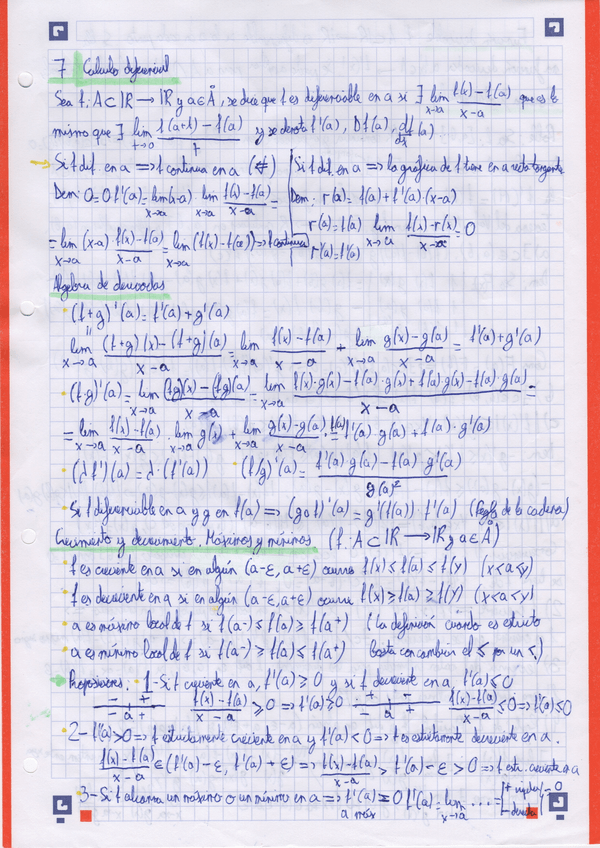 7 Calculo diferencial
Sea f: A⊂ℝ → ℝ y a∈Å, se dice que f es diferenciable en a si ∃ lim_{x→a} (f(x)-f(a))/(x-a) que es lo
mismo que ∃ lim_{t→0} (f(a+t)-f(a))/t y se denota f'(a), Df(a), df/dx(a)
→ Si f dif. en a ⟹ f continua en a (⇍)
Dem: 0=0·f'(a)= lim_{x→a}(x-a) · lim_{x→a} (f(x)-f(a))/(x-a) =
= lim_{x→a} (x-a) (f(x)-f(a))/(x-a) = lim_{x→a} (f(x)-f(a)) ⟹ f continua
Si f dif. en a ⟹ la gráfica de f tiene en a recta tangente
Dem: r(x)= f(a)+f'(a)·(x-a)
r(a)=f(a) lim_{x→a} (f(x)-r(x))/(x-a) = 0
r'(a)=f'(a)
Algebra de derivadas
· (f+g)'(a)= f'(a)+g'(a)
lim_{x→a} ((f+g)(x)-(f+g)(a))/(x-a) = lim_{x→a} (f(x)-f(a))/(x-a) + lim_{x→a} (g(x)-g(a))/(x-a) = f'(a)+g'(a)
· (f·g)'(a)= lim_{x→a} ((fg)(x)-(fg)(a))/(x-a) = lim_{x→a} (f(x)·g(x)-f(a)·g(x)+f(a)g(x)-f(a)·g(a))/(x-a) =
= lim_{x→a} (f(x)-f(a))/(x-a) · lim_{x→a} g(x) + lim_{x→a} (g(x)-g(a))/(x-a) · f(a) = f'(a)·g(a)+f(a)·g'(a)
· (λf')(a)= λ·(f'(a)) · (f/g)'(a)= (f'(a)g(a)-f(a)g'(a))/g(a)²
· Si f diferenciable en a y g en f(a) ⟹ (g∘f)'(a)= g'(f(a))·f'(a) (Regla de la cadena)
Crecimiento y decrecimiento. Máximos y mínimos (f: A⊂ℝ → ℝ y a∈Å)
· f es creciente en a si en algún (a-ε, a+ε) ocurre f(x)≤f(a)≤f(y) (x<a<y)
· f es decreciente en a si en algún (a-ε, a+ε) ocurre f(x)≥f(a)≥f(y) (x<a<y)
· a es máximo local de f si f(a-)≤f(a)≥f(a+) (La definición cuando es estricto
· a es mínimo local de f si f(a-)≥f(a)≤f(a+) basta con cambiar el ≤ por un <)
→ Proposiciones: 1-Si f creciente en a, f'(a)≥0 y si f decreciente en a, f'(a)≤0
- + / - a + (f(x)-f(a))/(x-a) ≥0 ⟹ f'(a)≥0 + - / - a + (f(x)-f(a))/(x-a) ≤0 ⟹ f'(a)≤0
2- f'(a)>0 ⟹ f estrictamente creciente en a y f'(a)<0 ⟹ f es estrictamente decreciente en a.
(f(x)-f(a))/(x-a) ∈ (f'(a)-ε, f'(a)+ε) ⟹ (f(x)-f(a))/(x-a) > f'(a)-ε > 0 ⟹ f estr. creciente en a
3- Si f alcanza un máximo o un mínimo en a ⟹ f'(a)=0 f'(a)= lim_{x→a} ... =
a máx